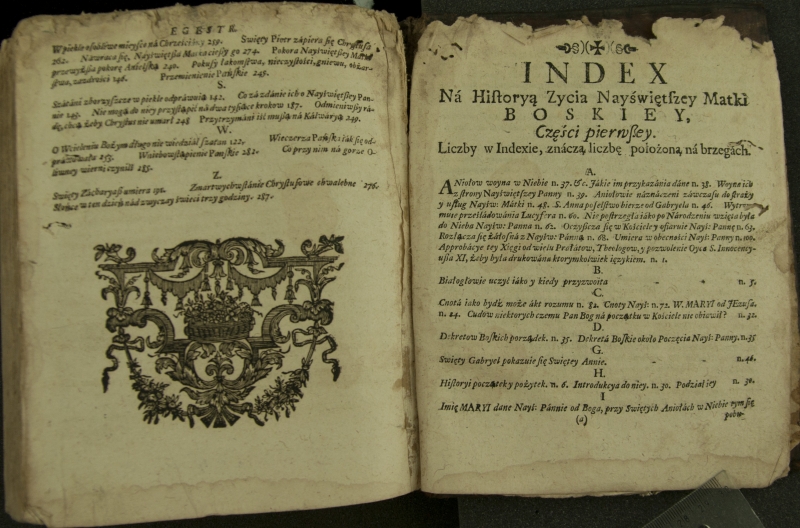 EGESTR.
W piekle osobliwe mieysce ná Chrześciány 239. Swięty Piotr zápiera się Chrystusa
262. Náwraca się, Nayświętsza Matka cieszy go 274. Pokora Nayświętszey Matki
przewyszsza pokorę Anielską 240. Pokusy łákomstwa, nieczystości, gniewu, obżar-
stwa, zazdrości 246. Przemienienie Páńskie 245.
S.
Szátáni zborzyszcze w piekle odpráwuią 242. Co zá zdánie ich o Nayświętszey Pan-
nie 243. Nie mogą do niey przystąpić ná dwa tysiące krokow 187. Odmieniwszy rá-
dę, chcą żeby Chrystus nie umarł 248 Przytrzymáni iść muszą ná Kálwáryą 249.
W.
O Wcieleniu Bożym długo nie wiedział szatan 122. Wieczerza Páńska iák się od-
práwowała 253. Wniebowstąpienie Páńskie 282. Co przy nim ná gorze O-
liwney wierni czynili 285.
Z.
Swięty Zácharyasz umiera 191. Zmartwychwstánie Chrystusowe chwalebne 276.
Słońce w ten dzień nád zwyczay świeci trzy godziny. 287.
INDEX
Ná Historyą Zycia Nayświętszey Matki
BOSKIEY,
Części pierwszey.
Liczby w Indexie, znáczą, liczbę położoną, ná brzegách.
A.
ANiołow woyna w Niebie n. 37. &c. Jákie im przykazánia dáne n. 38. Woynę ich
z strony Nayświętszey Panny n. 39. Aniołowie náznáczeni záwczasu do straży
y usług Nayśw: Mátki n. 48. S. Anna poselstwo bierze od Gabryelá n. 46. Wytrzy-
muie prześládowánia Lucyfra n. 60. Nie postrzegła iáko po Národzeniu wzięta była
do Nieba Nayśw: Panna n. 62. Oczyszcza się w Kościele y ofiaruie Nayś: Pannę n. 63.
Rozłącza się żáłosna z Nayśw: Pánną n. 68. Umiera w obecności Nayś: Panny n. 100.
Approbácye tey Xięgi od wielu Prałatow, Theologow, y pozwolenie Oycá S. Innocenty-
usza XI, żeby była drukowána ktorymkolwiek ięzykiem. n. 1.
B.
Białogłowie uczyć iáko y kiedy przyzwoita - - n. 5.
C.
Cnotá iáko bydź może ákt rozumu n. 82. Cnoty Nayś: n. 72. W. MARYI od JEzusa.
n. 24. Cudow niektorych czemu Pan Bog ná początku w Kościele nie obiawił? n. 32.
D.
Dekretow Boskich porządek. n. 35. Dekretá Boskie około Poczęcia Nayś: Panny. n. 35
G.
Swięty Gabryel pokazuie się Swiętey Annie. - - n. 46.
H.
Historyi początek y pożytek. n. 6. Introdukcya do niey. n. 30. Podział iey n. 30.
I
Imię MARYI dane Nayś: Pánnie od Boga, przy Swiętych Aniołách w Niebie tym się
(a) pobu-